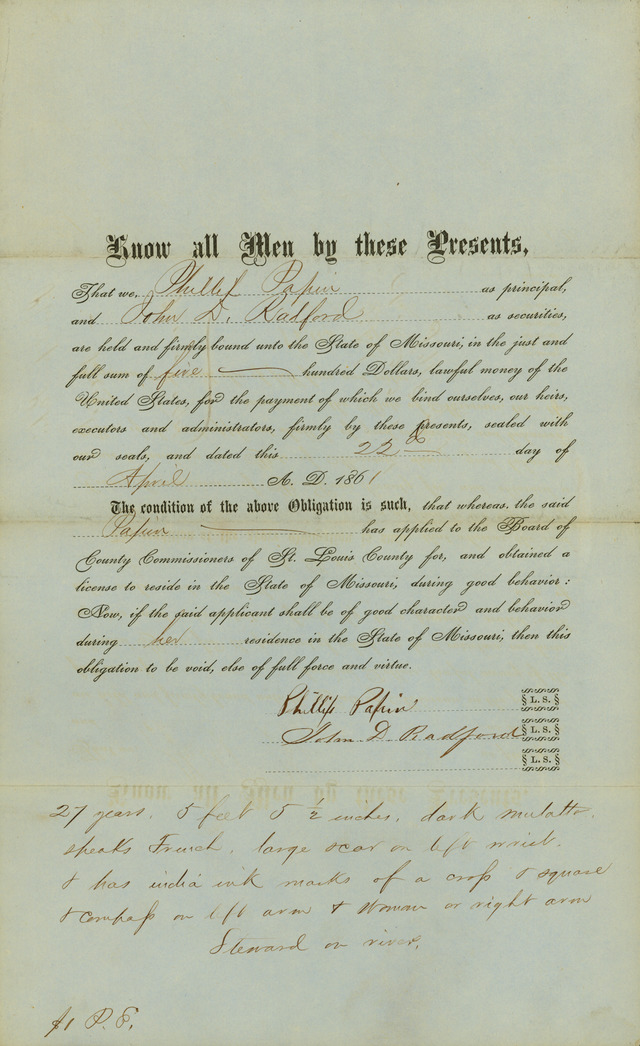 Know all Men by these Presents,
That we, Phillip Papin as principal,
and John D. Radford as securities,
are held and firmly bound unto the State of Missouri, in the just and
full sum of five hundred Dollars, lawful money of the
United States, for the payment of which we bind ourselves, our heirs,
executors and administrators, firmly by these presents, sealed with
our seals, and dated this 22d day of
April A. D. 1861
The condition of the above Obligation is such, that whereas, the said
Papin has applied to the Board of
County Commissioners of St. Louis County for, and obtained a
license to reside in the State of Missouri, during good behavior:
Now, if the said applicant shall be of good character and behavior
during her residence in the State of Missouri, then this
obligation to be void, else of full force and virtue.
Phillip Papin L. S.
John D. Radford L. S.
L. S.
27 years. 5 feet 5 ½ inches, dark mulatto.
speaks French. large scar on left wrist.
& has india ink marks of a cross & square
& compass on left arm & woman on right arm
Steward on river.